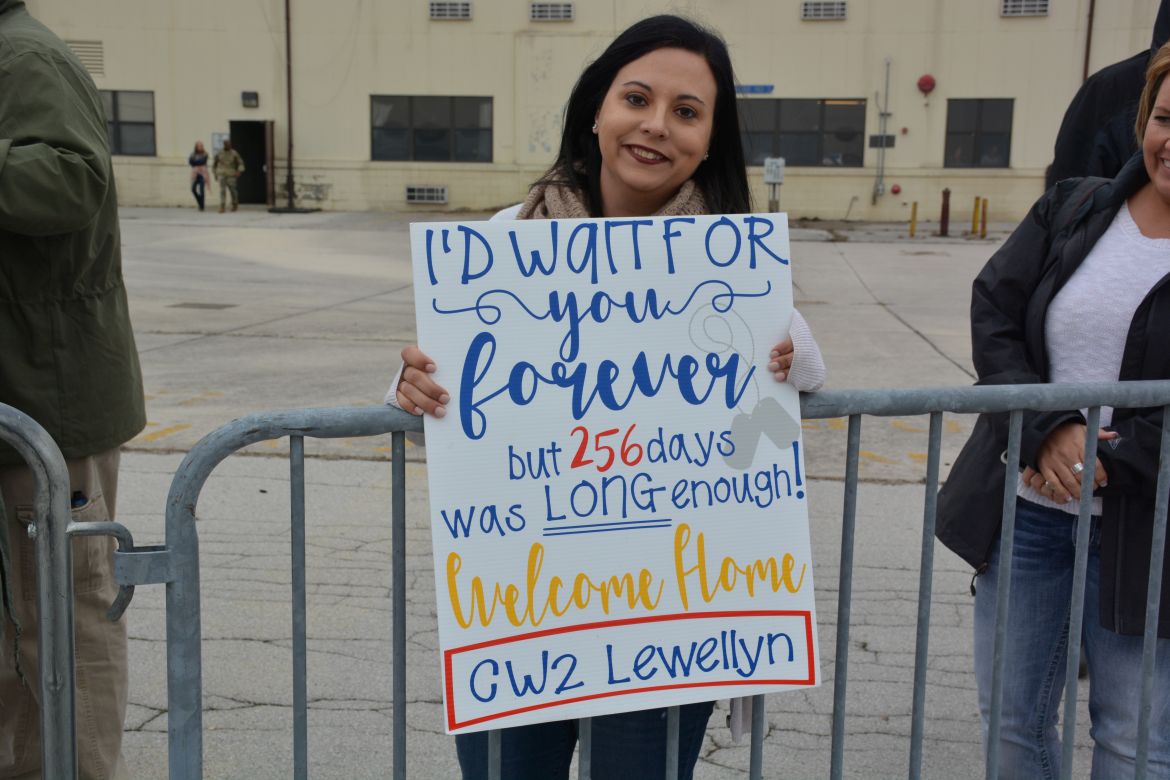 I'D WAIT FOR
you
forever
but 256 days
was LONG enough!
Welcome Home
CW2 Lewellyn